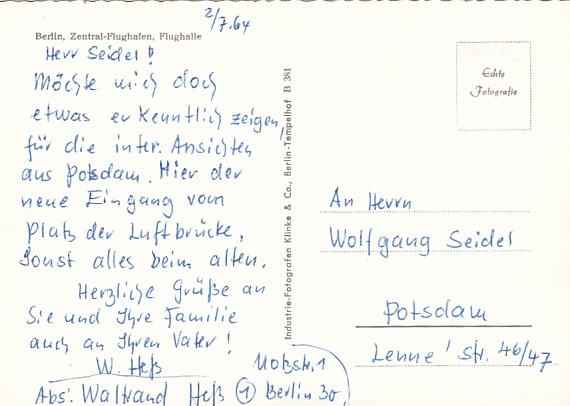 2/7.64
Berlin, Zentral-Flughafen, Flughalle
Herr Seidel!
Möchte mich doch
etwas erkenntlich zeigen,
für die inter. Ansichten
aus Potsdam. Hier der
neue Eingang vom
Platz der Luftbrücke,
sonst alles beim alten.
Herzliche Grüße an
Sie und Ihre Familie
auch an Ihren Vater!
W. Heß
Abs. Waltraud Heß ① Berlin 30,
Motzstr. 1
Industrie-Fotografen Klinke & Co., Berlin-Tempelhof B 381
Echte
Fotografie
An Herrn
Wolfgang Seidel
Potsdam
Lenné str. 46/47